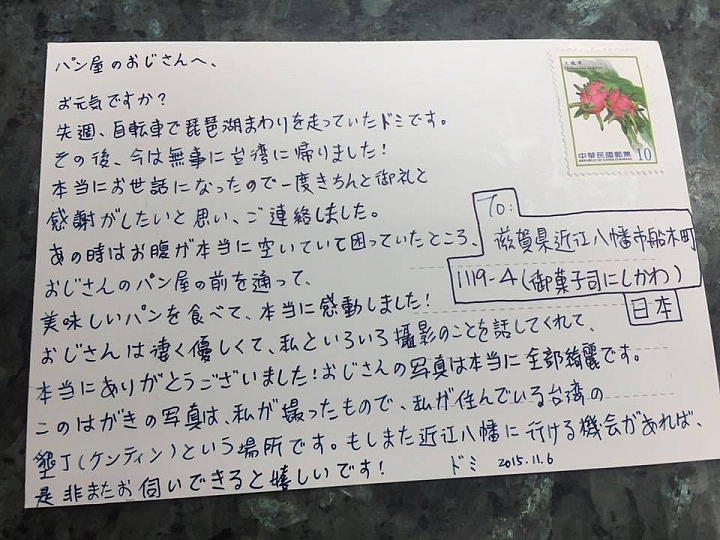 パン屋のおじさんへ、
お元気ですか?
先週、自転車で琵琶湖まわりを走っていたドミです。
その後、今は無事に台湾に帰りました!
本当にお世話になったので一度きちんと御礼と
感謝がしたいと思い、ご連絡しました。
あの時はお腹が本当に空いていて困っていたところ、
おじさんのパン屋の前を通って、
美味しいパンを食べて、本当に感動しました!
おじさんは凄く優しくて、私といろいろ攝影のことを話してくれて、
本当にありがとうございました!おじさんの写真は本当に全部綺麗です。
このはがきの写真は、私が撮ったもので、私が住んでいる台湾の
墾丁(ケンティン)という場所です。もしまた近江八幡に行ける機会があれば、
是非またお伺いできると嬉しいです!
ドミ 2015.11.6
To:
滋賀県近江八幡市船木町
1119-4(御菓子司にしかわ)
日本
火龍果
中華民國郵票
REPUBLIC OF CHINA (TAIWAN)
10